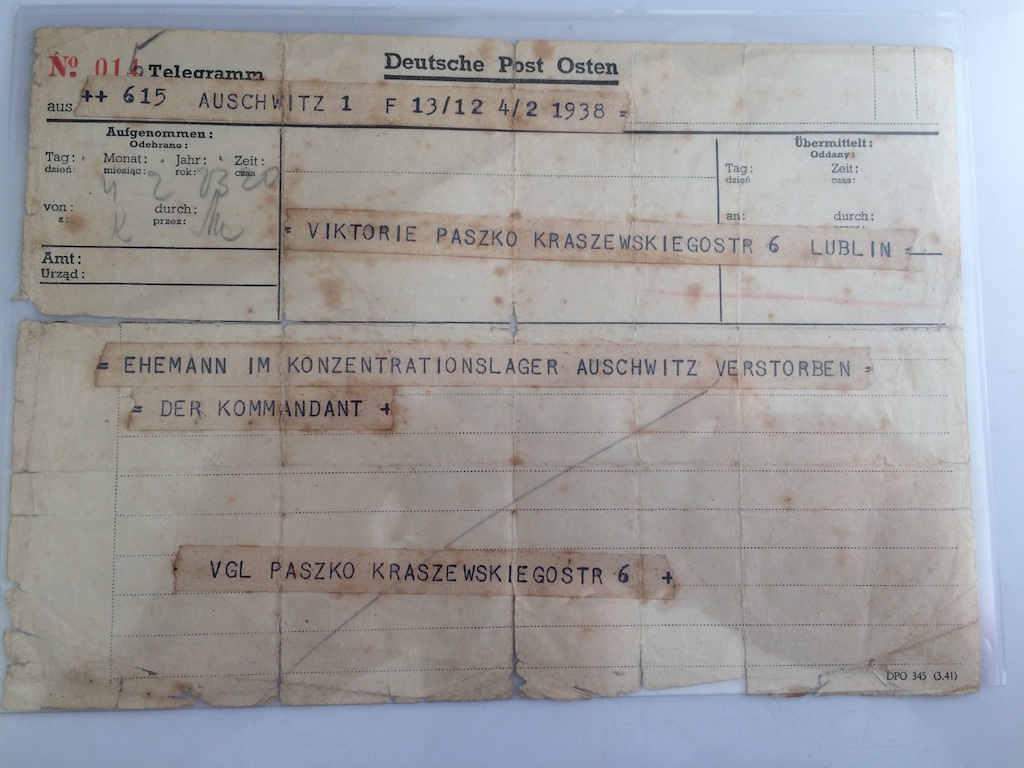 № 015 Telegramm
Deutsche Post Osten
aus ++ 615 AUSCHWITZ 1 F 13/12 4/2 1938 =
Aufgenommen:
Odebrano:
Tag: Monat: Jahr: Zeit:
dzień: miesiąc: rok: czas
4 2 2320
von: durch:
z: przez:
Amt:
Urząd:
Übermittelt:
Oddany:
Tag: Zeit:
dzień czas:
an: durch:
= VIKTORIE PASZKO KRASZEWSKIEGOSTR 6 LUBLIN =
= EHEMANN IM KONZENTRATIONSLAGER AUSCHWITZ VERSTORBEN =
= DER KOMMANDANT +
VGL PASZKO KRASZEWSKIEGOSTR 6 +
DPO 345 (3.41)